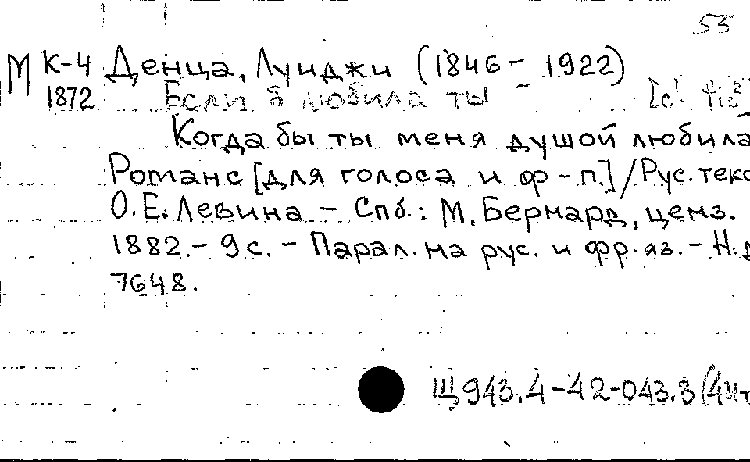 53
М К-4 Денца, Луиджи (1846 - 1922)
1872 Если б любила ты
Когда бы ты меня душой любила
Романс [для голоса и ф-п.] / Рус. текс
О.Е. Левина - Спб.: М. Бернард, ценз.
1882. - 9 с. - Парал. на рус. и фр. яз. - Н.д
7648.
Щ943.4-42-043.3(4Ит